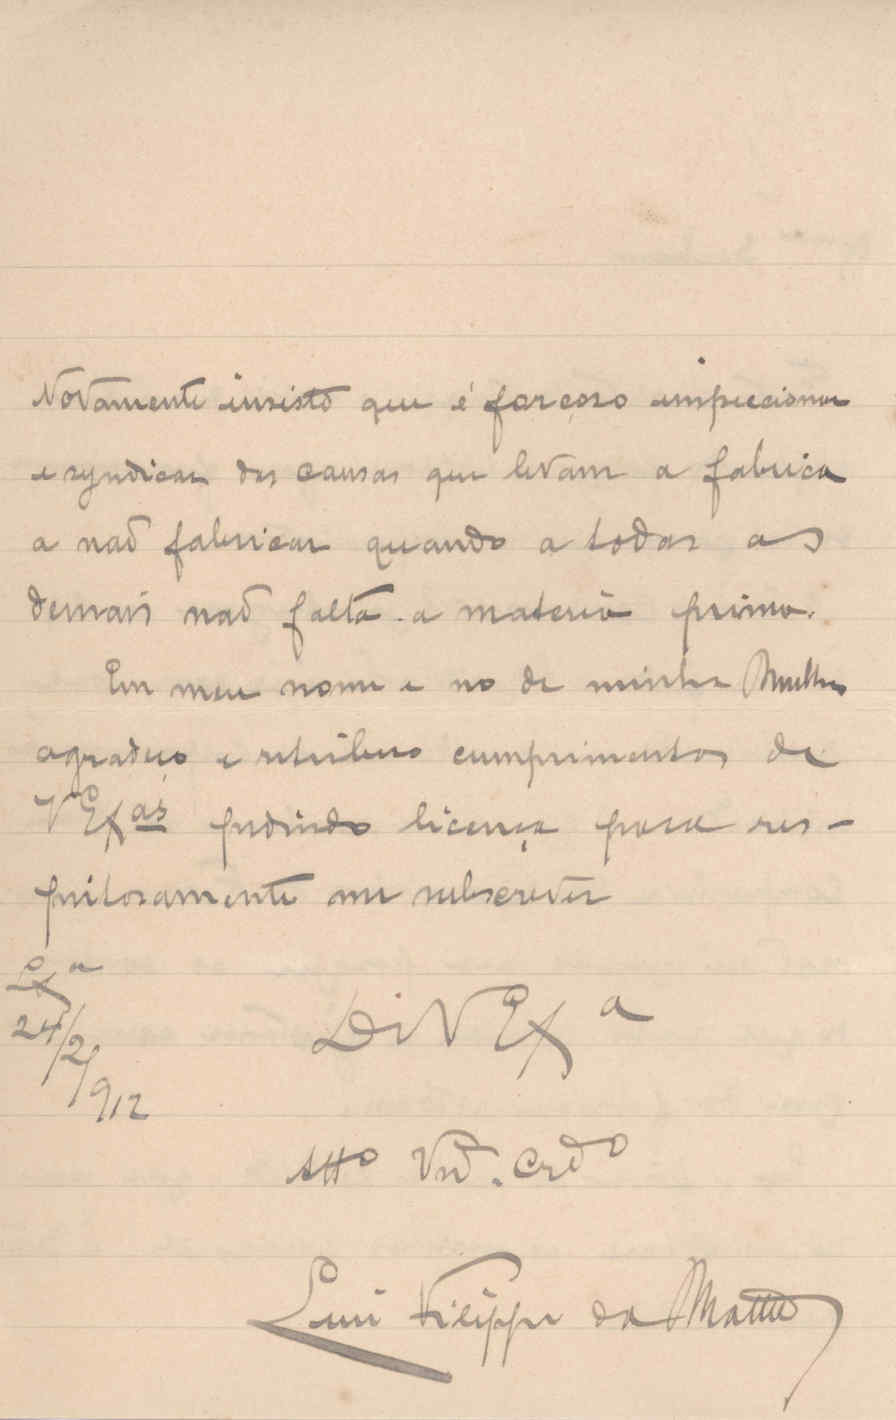 Novamente insisto que é forçoso inspeccionar
e syndicar das causas que levam a fabrica
a não fabricar quando a todas as
demais não falta a materia prima.
Em meu nome e no de minha Mulher
agradeço e retribuo cumprimentos de
V Exas pedindo licença para res-
peitosamente me subscrever
Lxa
24/2/912
De V Exa
Atto Vnd. Crdo
Luis Filippe da Matta